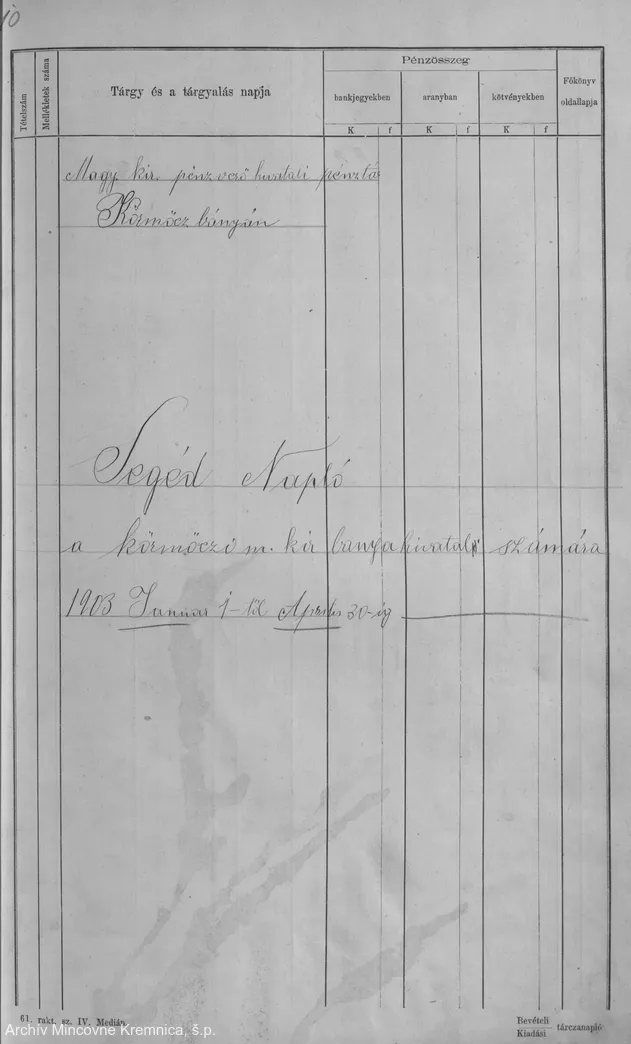 10
Pénzösszeg
Tételszám
Mellékletek száma
Tárgy és a tárgyalás napja
bankjegyekben
aranyban
kötvényekben
Főkönyv
oldallapja
K f K f K f
Magy. kir. pénzverő hivatali pénztár
Körmöcz bányán
Segéd Napló
a körmöczi m. kir bánya hivatal számára
1903 Januar 1-től Április 30-ig
61. rakt. sz. IV. Medián.
Bevételi
Kiadási
tárczanapló
Archív Mincovne Kremnica, š.p.